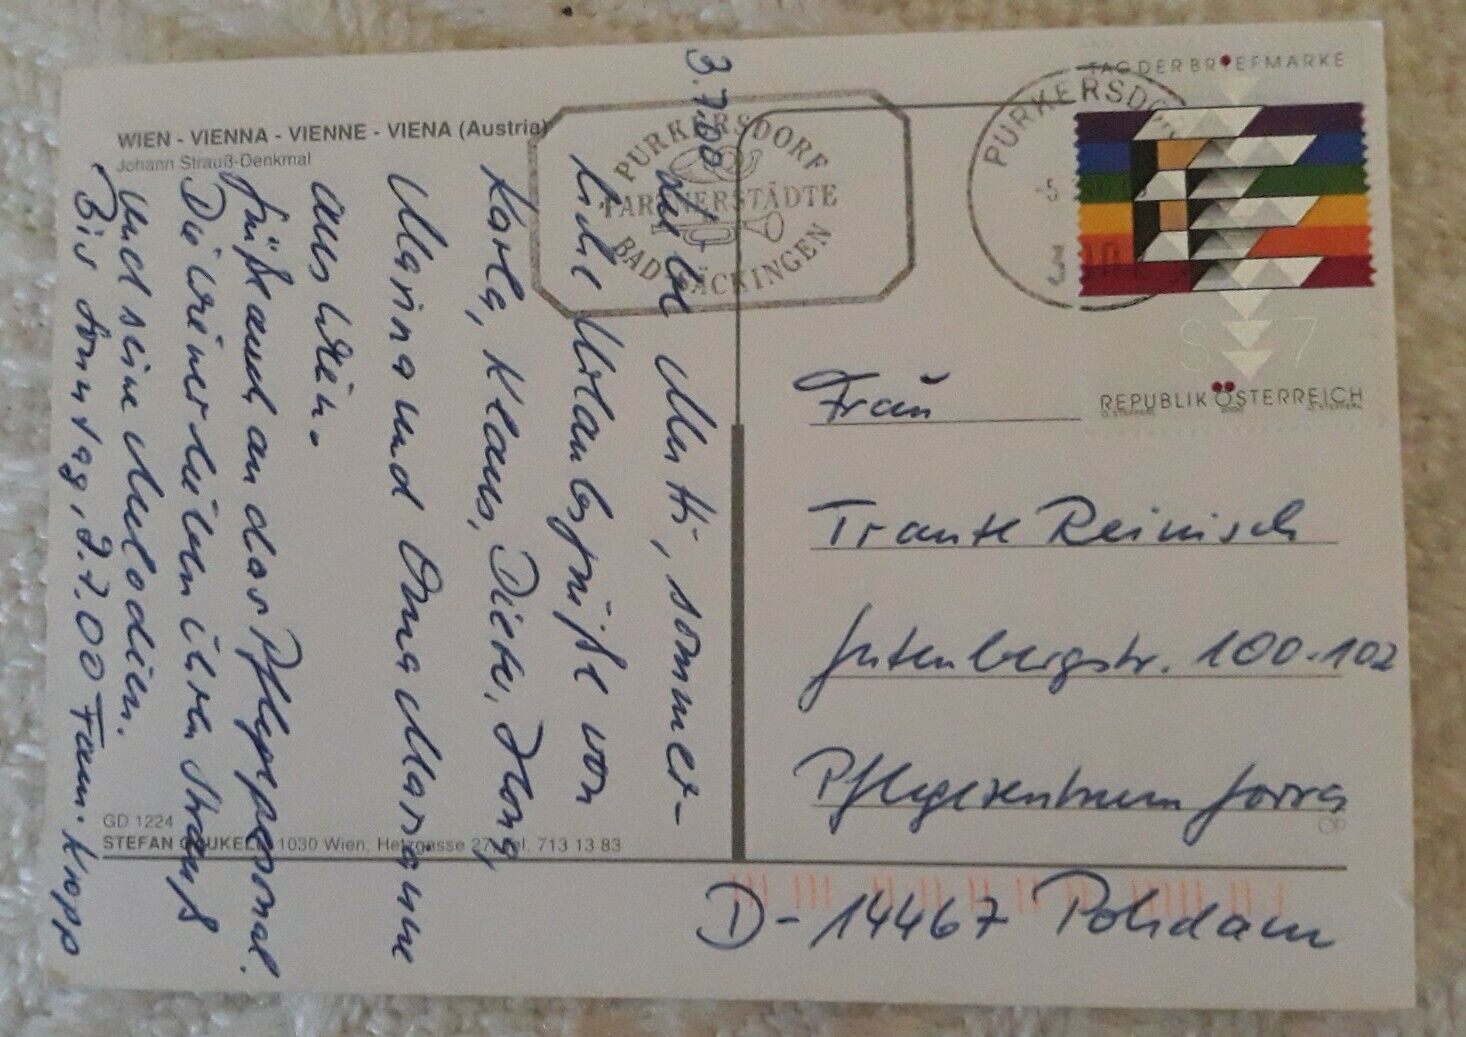 WIEN - VIENNA - VIENNE - VIENA (Austria)
Johann Strauß-Denkmal
3.7.00
Liebe Mutti, sommer-
liche Urlaubsgrüße von
Karla, Klaus, Dieter, Ilona,
Marina und Oma Marianne
aus Wien.
Grüße auch an das Pflegepersonal.
Die Wiener lieben ihren Strauß
und seine Melodien.
Bis Sonntag, 9.7.00 Fam. Kropp
GD 1224
STEFAN 1030 Wien, Hetzgasse 27, Tel. 713 13 83
PURKERSDORF
PARTNERSTÄDTE
BAD SÄCKINGEN
PURKERSDORF
-5
TAG DER BRIEFMARKE
S 7
REPUBLIK ÖSTERREICH
2000
Frau
Traute Reinisch
Gutenbergstr. 100-102
Pflegezentrum
D-14467 Potsdam